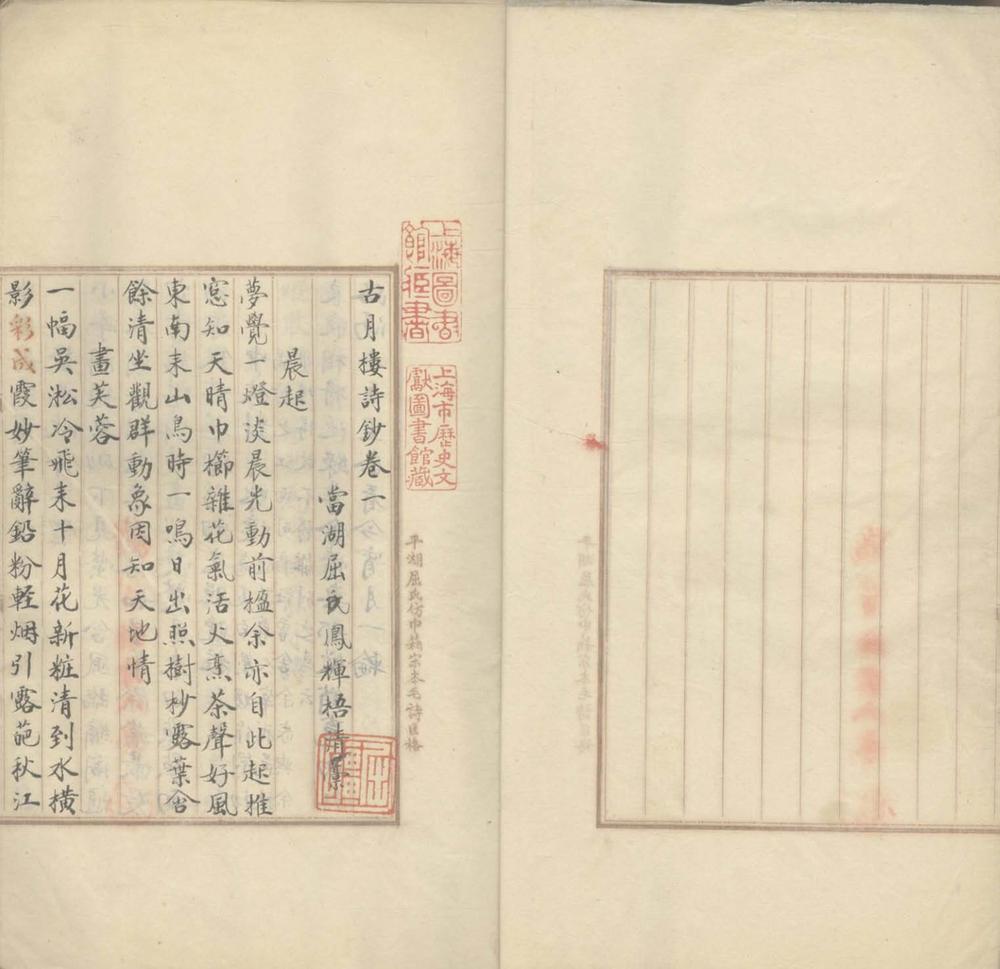 古月樓詩鈔卷一
當湖屈氏鳳輝梧清纂
晨起
夢覺一燈淡晨光動前楹余亦自此起推
窓知天晴巾櫛雜花氣活火烹茶聲好風
東南来山鳥時一鳴日出照樹杪露葉含
餘清坐觀群動象因知天地情
畫芙蓉
一幅吳淞冷飛来十月花新粧清到水橫
影彩成霞妙筆辭鉛粉輕烟引露葩秋江
上海圖書館藏書
上海市歷史文獻圖書館藏
平湖屈氏仿巾箱宋本毛詩匡格